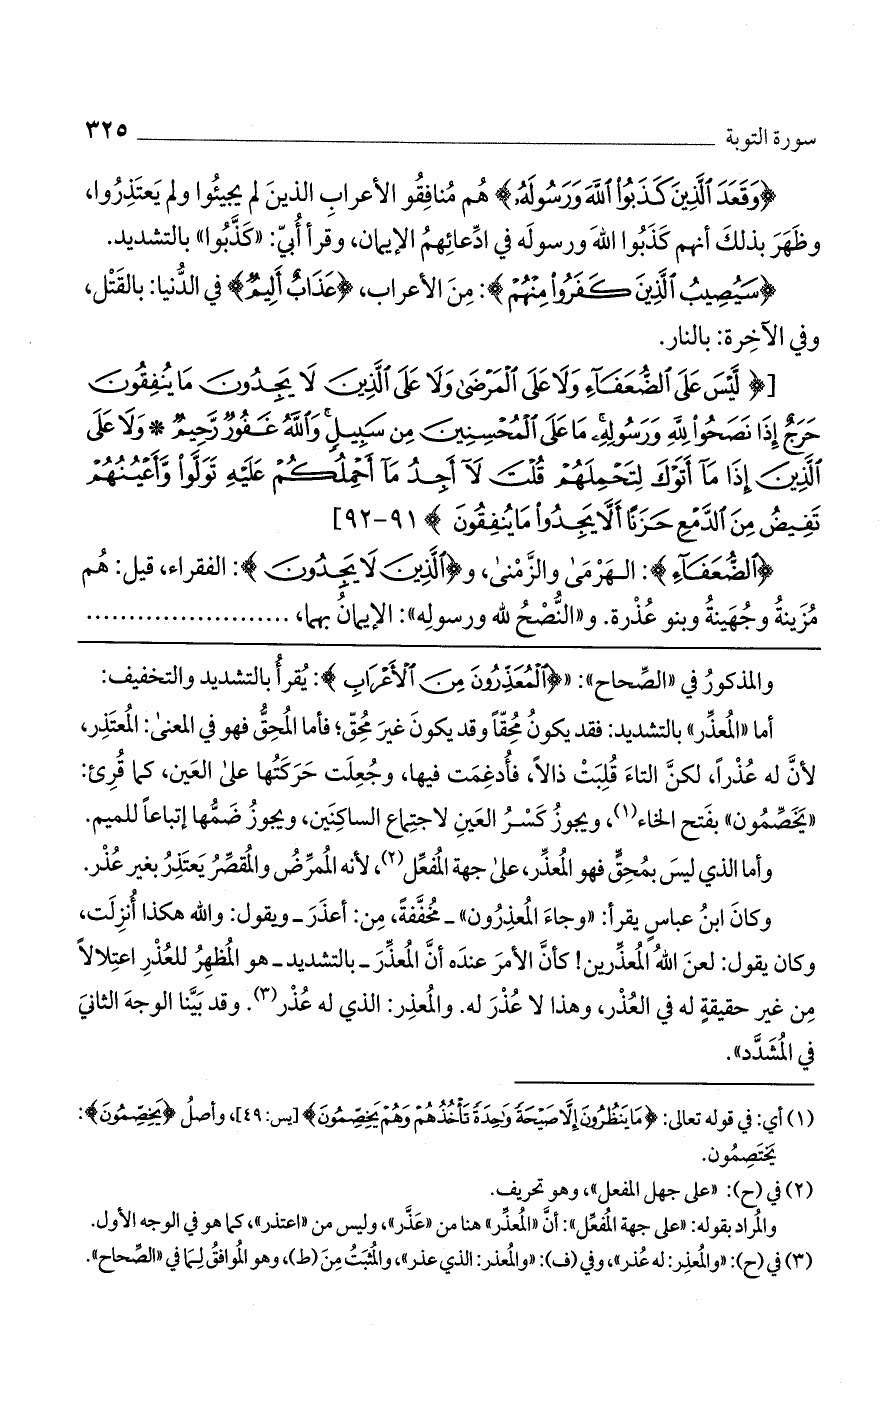 سورة التوبة ٣٢٥
﴿وَقَعَدَ ٱلَّذِينَ كَذَبُواْ ٱللَّهَ وَرَسُولَهُۥ﴾ هُم مُنافِقُو الأعرابِ الذينَ لم يجيئُوا ولم يَعتَذِرُوا،
وظَهَرَ بذلكَ أنهم كَذَبُوا اللهَ ورسولَه في ادِّعائِهِمُ الإيمان، وقرأ أُبيّ: «كَذَّبُوا» بالتشديد.
﴿سَيُصِيبُ ٱلَّذِينَ كَفَرُواْ مِنْهُمْ﴾: مِنَ الأعراب، ﴿عَذَابٌ أَلِيمٌ﴾ في الدُّنيا: بالقَتْل،
وفي الآخِرة: بالنار.
[﴿لَّيْسَ عَلَى ٱلضُّعَفَآءِ وَلَا عَلَى ٱلْمَرْضَىٰ وَلَا عَلَى ٱلَّذِينَ لَا يَجِدُونَ مَا يُنفِقُونَ
حَرَجٌ إِذَا نَصَحُواْ لِلَّهِ وَرَسُولِهِۦ مَا عَلَى ٱلْمُحْسِنِينَ مِن سَبِيلٍ وَٱللَّهُ غَفُورٌ رَّحِيمٌ * وَلَا عَلَى
ٱلَّذِينَ إِذَا مَآ أَتَوْكَ لِتَحْمِلَهُمْ قُلْتَ لَآ أَجِدُ مَآ أَحْمِلُكُمْ عَلَيْهِ تَوَلَّواْ وَّأَعْيُنُهُمْ
تَفِيضُ مِنَ ٱلدَّمْعِ حَزَنًا أَلَّا يَجِدُواْ مَا يُنفِقُونَ﴾ ٩١-٩٢]
﴿ٱلضُّعَفَآءِ﴾: الهَرْمَىٰ والزَّمْنىٰ، و﴿ٱلَّذِينَ لَا يَجِدُونَ﴾: الفقراء، قيل: هُم
مُزَينةُ وجُهَينةُ وبنو عُذْرة. و«النُّصْحُ لله ورسولِه»: الإيمانُ بهما، ........................
والمذكورُ في «الصِّحاح»: «﴿ٱلْمُعَذِّرُونَ مِنَ ٱلْأَعْرَابِ﴾: يُقرأُ بالتشديد والتخفيف:
أما «المُعذِّر» بالتشديد: فقد يكونُ مُحِقّاً وقد يكونَ غيرَ مُحِقّ؛ فأما المُحِقُّ فهو في المعنىٰ: المُعتَذِر،
لأنَّ له عُذْراً، لكنَّ التاءَ قُلِبَتْ ذالاً، فأُدغِمَت فيها، وجُعِلَت حَرَكَتُها علىٰ العَين، كما قُرِئ:
«يَخَصِّمُون» بفَتح الخاء(١)، ويجوزُ كَسْرُ العَينِ لاجتِماع الساكِنَين، ويجوزُ ضَمُّها إتباعاً للميم.
وأما الذي ليسَ بمُحِقٍّ فهو المُعذِّر، علىٰ جهة المُفعِّل(٢)، لأنه المُمرِّضُ والمُقصِّرُ يَعتَذِرُ بغير عُذْر.
وكانَ ابنُ عباسٍ يقرأ: «وجاءَ المُعذِرُون» ـ مخُفَّفةً، مِن: أعذَرَ ـ ويقول: والله هكذا أُنزِلَت،
وكان يقول: لعنَ اللهُ المُعذِّرين! كأنَّ الأمرَ عندَه أنَّ المُعذِّرَ ـ بالتشديد ـ هو المُظهِرُ للعُذْرِ اعتِلالاً
مِن غير حقيقةٍ له في العُذْر، وهذا لا عُذْرَ له. والمُعذِر: الذي له عُذْر(٣). وقد بيَّنا الوجهَ الثانيَ
في المُشَدَّد».
(١) أي: في قوله تعالى: ﴿مَا يَنظُرُونَ إِلَّا صَيْحَةً وَٰحِدَةً تَأْخُذُهُمْ وَهُمْ يَخِصِّمُونَ﴾ [يس: ٤٩]، وأصلُ ﴿يَخِصِّمُونَ﴾:
يَختَصِمُون.
(٢) في (ح): «على جهل المفعل»، وهو تحريف.
والمُراد بقوله: «على جهة المُفعِّل»: أنَّ «المُعذِّر» هنا من «عَذَّر»، وليس من «اعتذر»، كما هو في الوجه الأول.
(٣) في (ح): «والمُعذِر: له عُذر»، وفي (ف): «والمُعذر: الذي عذر»، والمُثبَتُ مِنَ (ط)، وهو المُوافقُ لِمَا في «الصِّحاح».